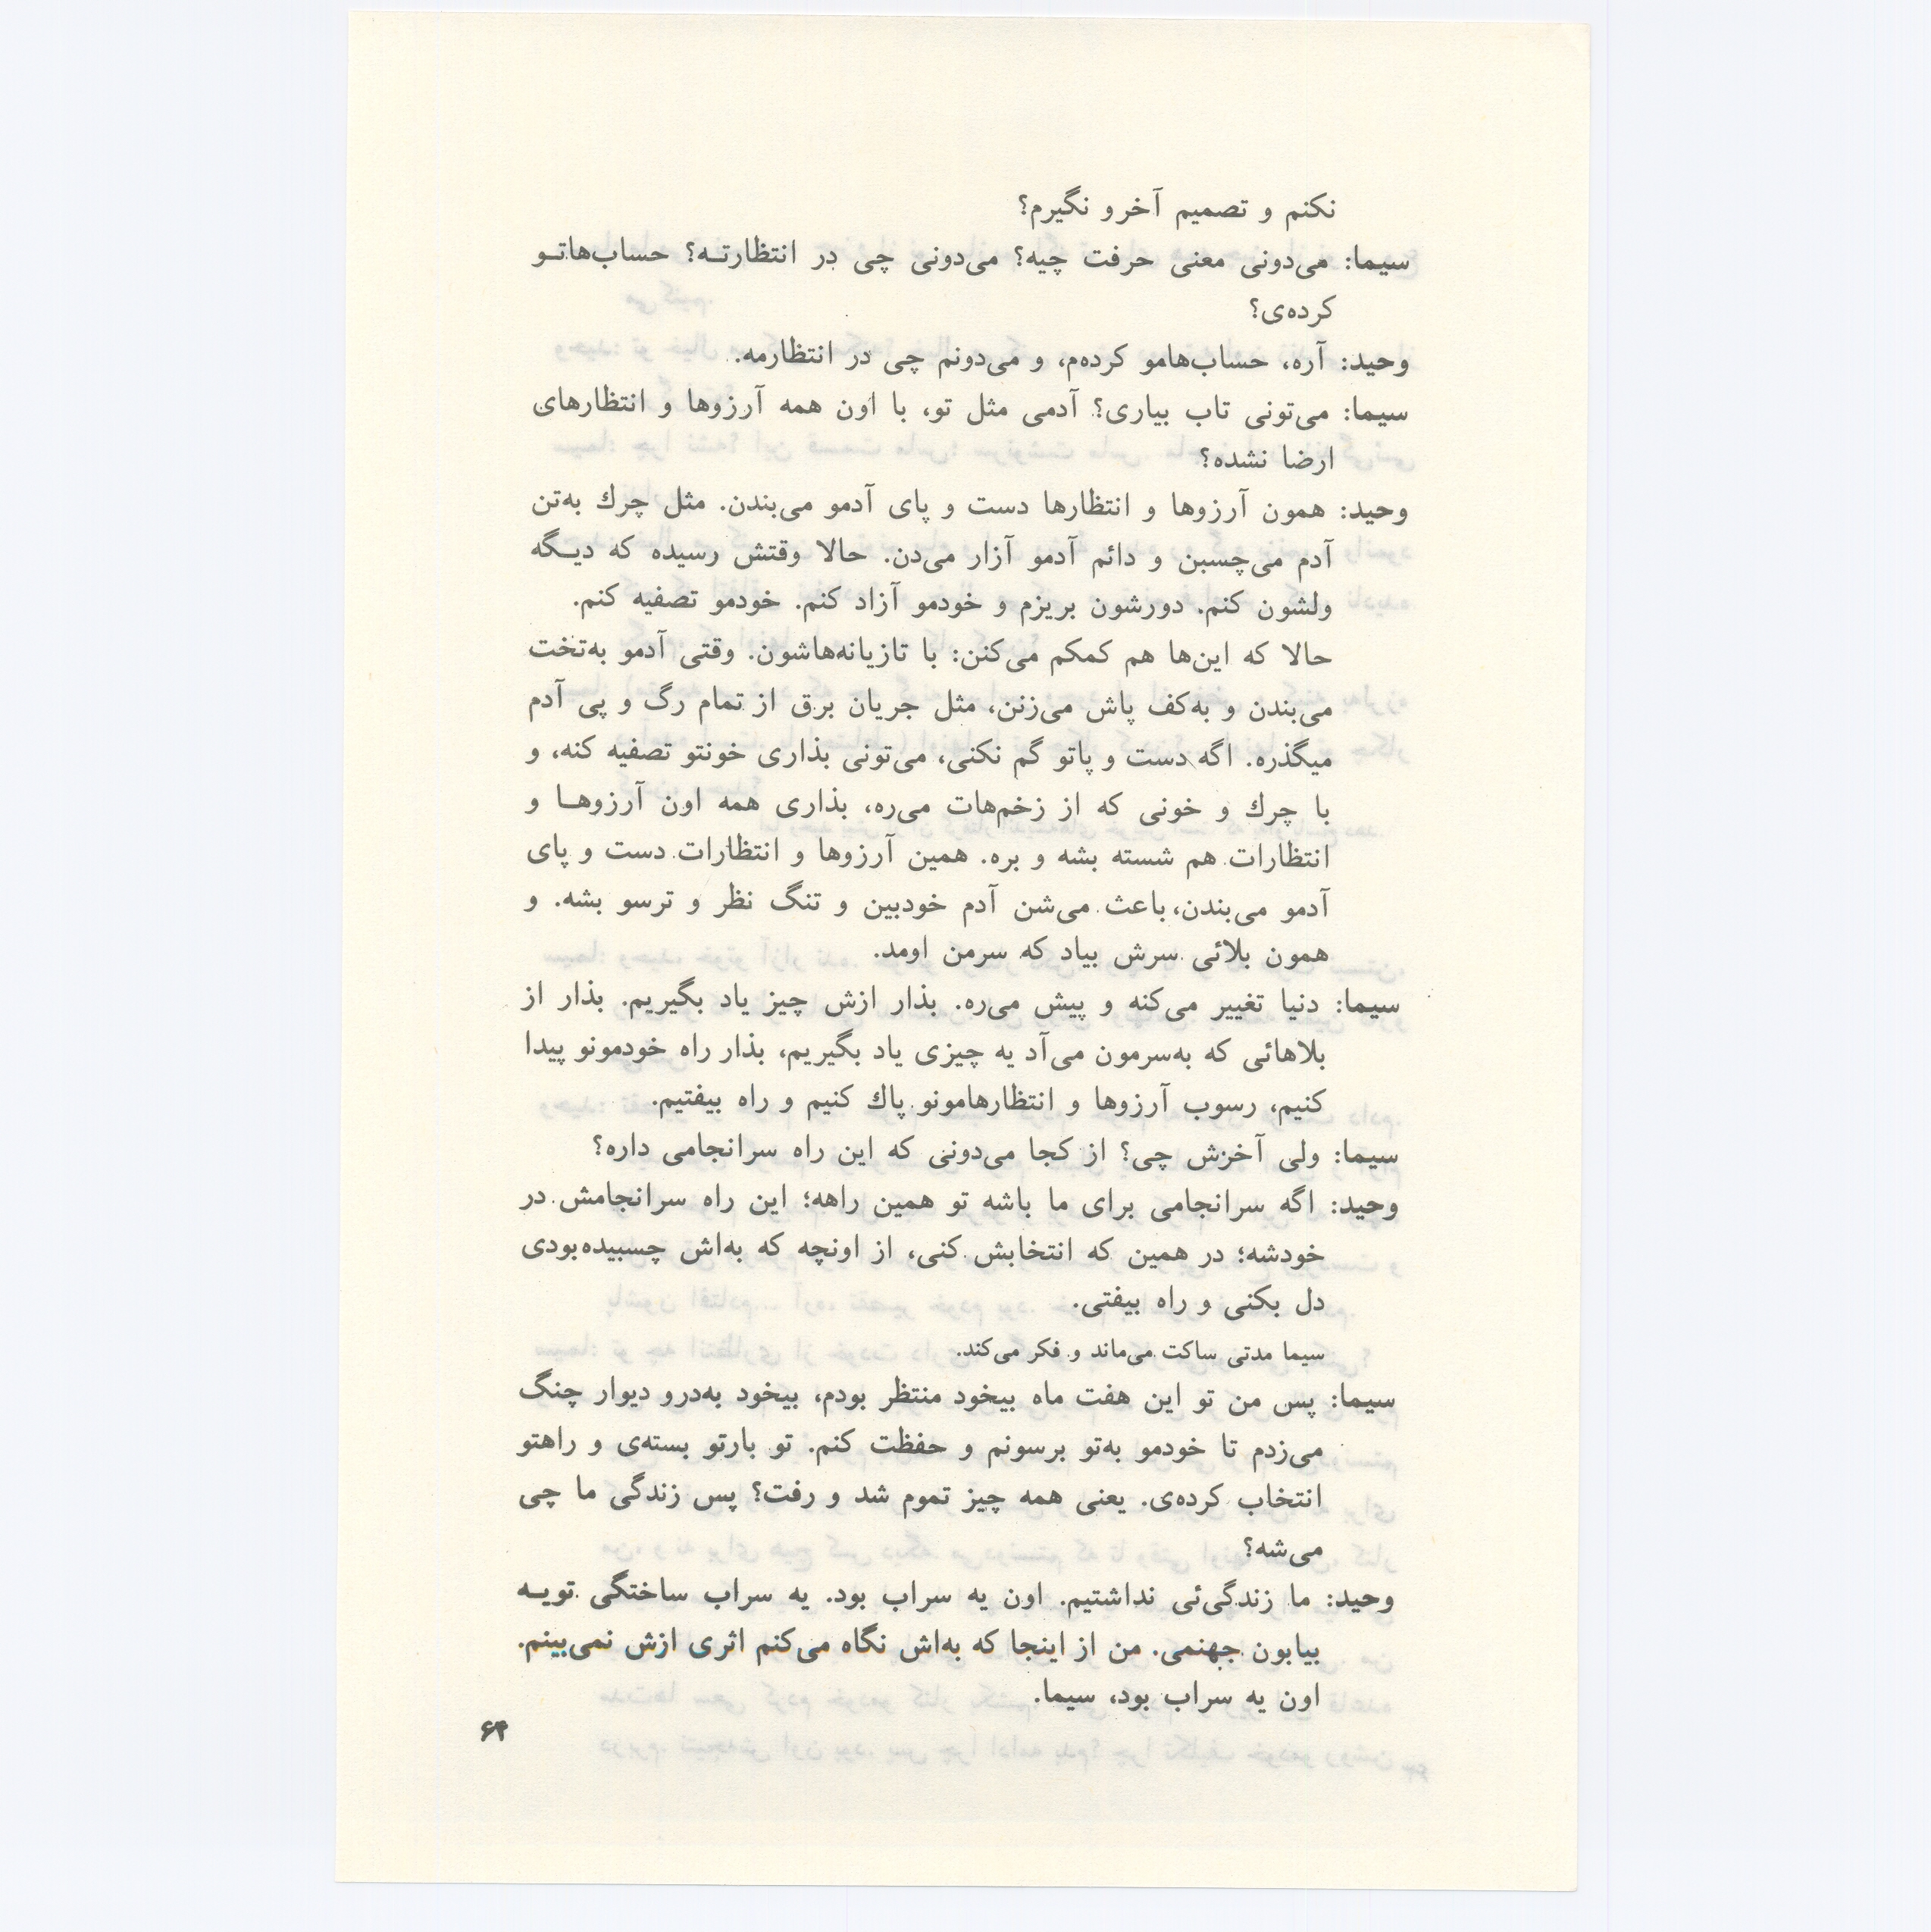 نکنم و تصمیم آخرو نگیرم؟
سیما: می‌دونی معنی حرفت چیه؟ می‌دونی چی در انتظارتـه؟ حساب‌هاتـو
کرده‌ی؟
وحید: آره، حساب‌هامو کرده‌م، و می‌دونم چی در انتظارمه.
سیما: می‌تونی تاب بیاری؟ آدمی مثل تو، با اون همه آرزوها و انتظارهای
ارضا نشده؟
وحید: همون آرزوها و انتظارها دست و پای آدمو می‌بندن. مثل چرك به‌تن
آدم می‌چسبن و دائم آدمو آزار می‌دن. حالا وقتش رسیده که دیـگه
ولشون کنم. دورشون بریزم و خودمو آزاد کنم. خودمو تصفیه کنم.
حالا که این‌ها هم کمکم می‌کنن: با تازیانه‌هاشون. وقتی آدمو به‌تخت
می‌بندن و به‌کف پاش می‌زنن، مثل جریان برق از تمام رگ و پی آدم
میگذره. اگه دست و پاتو گم نکنی، می‌تونی بذاری خونتو تصفیه کنه، و
با چرك و خونی که از زخم‌هات می‌ره، بذاری همه اون آرزوهـا و
انتظارات هم شسته بشه و بره. همین آرزوها و انتظارات دست و پای
آدمو می‌بندن، باعث می‌شن آدم خودبین و تنگ نظر و ترسو بشه. و
همون بلائی سرش بیاد که سرمن اومد.
سیما: دنیا تغییر می‌کنه و پیش می‌ره. بذار ازش چیز یاد بگیریم. بذار از
بلاهائی که به‌سرمون می‌آد یه چیزی یاد بگیریم، بذار راه خودمونو پیدا
کنیم، رسوب آرزوها و انتظارهامونو پاك کنیم و راه بیفتیم.
سیما: ولی آخرش چی؟ از کجا می‌دونی که این راه سرانجامی داره؟
وحید: اگه سرانجامی برای ما باشه تو همین راهه؛ این راه سرانجامش در
خودشه؛ در همین که انتخابش کنی، از اونچه که به‌اش چسبیده‌بودی
دل بکنی و راه بیفتی.
سیما مدتی ساکت می‌ماند و فکر می‌کند.
سیما: پس من تو این هفت ماه بیخود منتظر بودم، بیخود به‌درو دیوار چنگ
می‌زدم تا خودمو به‌تو برسونم و حفظت کنم. تو بارتو بسته‌ی و راهتو
انتخاب کرده‌ی. یعنی همه چیز تموم شد و رفت؟ پس زندگی ما چی
می‌شه؟
وحید: ما زندگی‌ئی نداشتیم. اون یه سراب بود. یه سراب ساختگی تویـه
بیابون جهنمی. من از اینجا که به‌اش نگاه می‌کنم اثری ازش نمی‌بینم.
اون یه سراب بود، سیما.
۶۴